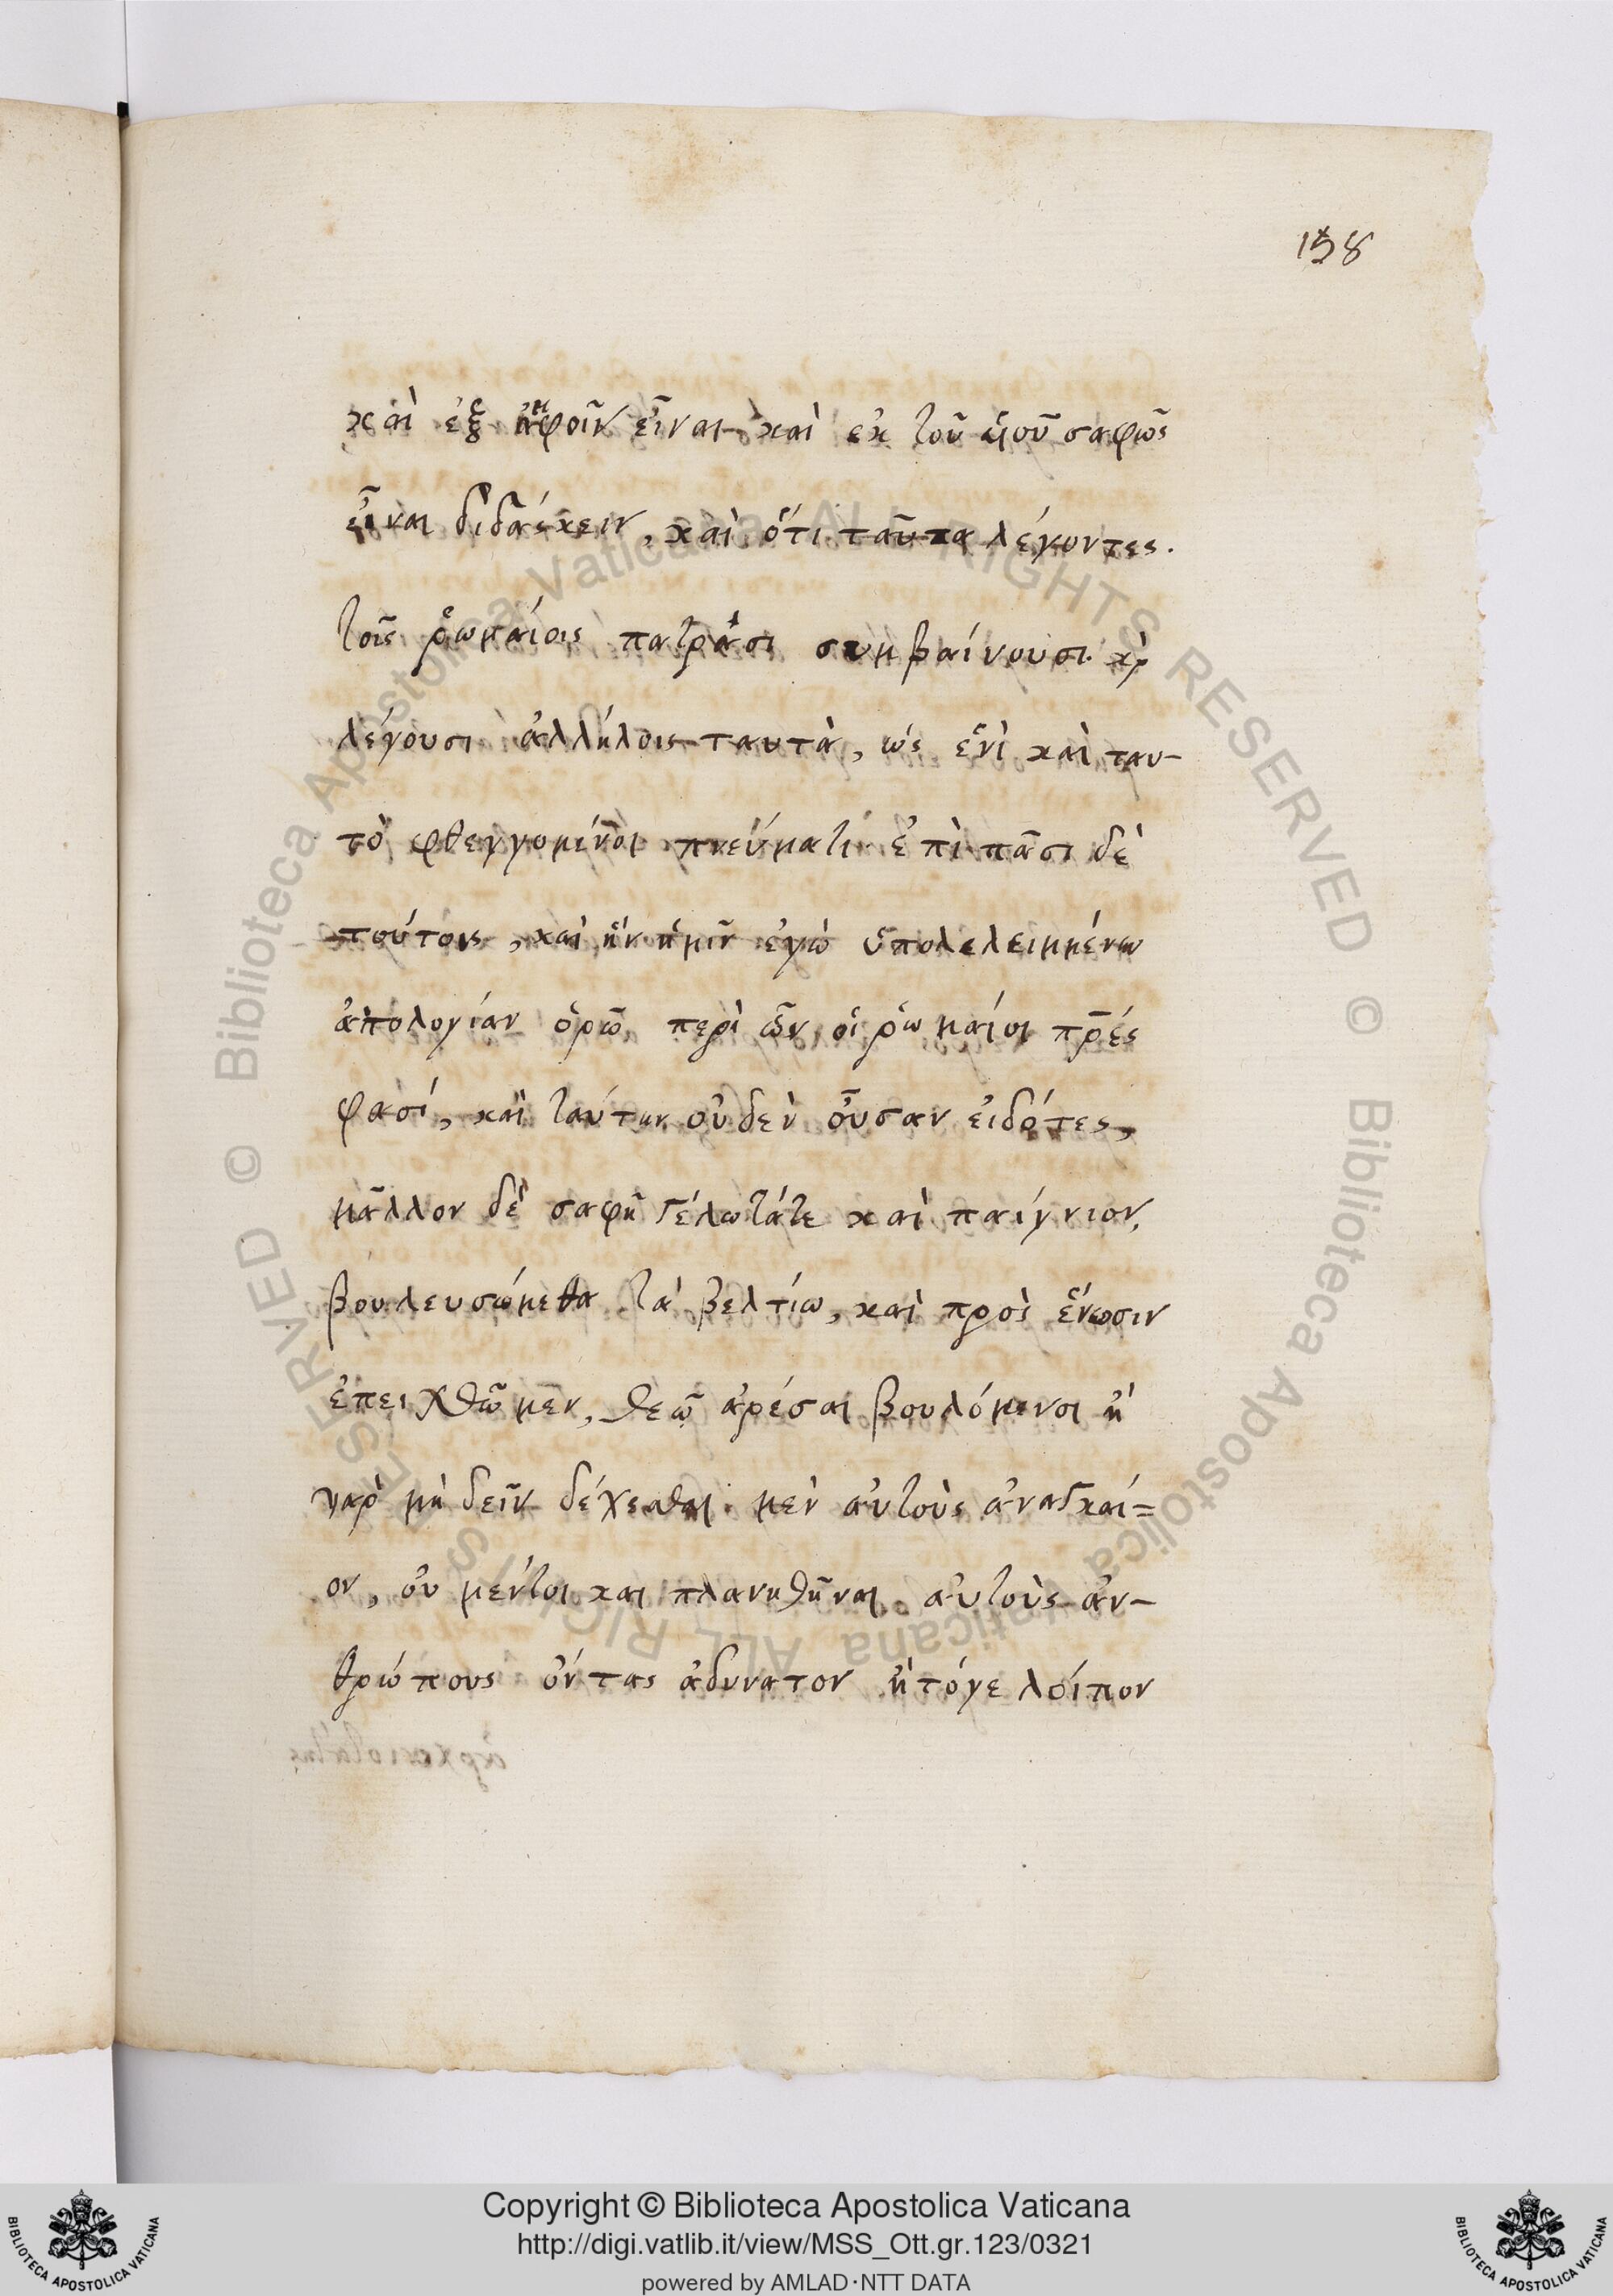 158
καὶ ἐξ ἀμφοῖν εἶναι καὶ ἐκ τοῦ υἱοῦ σαφῶς
εἶναι διδάσκειν, καὶ ὅτι ταῦτα λέγοντες.
τοῖς ῥωμαίοις πατράσι συμβαίνουσι κὶ
λέγουσι ἀλλήλοις ταυτὰ, ὡς ἑνὶ καὶ ταυ-
τὸ φθεγγομένοι πνεύματι ἐπὶ πᾶσι δὲ
τούτοις, καὶ ἣν ἡμῖν ἐγὼ ὑπολελειμμένην
ἀπολογίαν ὁρῶ περὶ ὧν οἱ ῥωμαίοι πρ̅ές
φασί, καὶ ταύτην οὐδὲν οὖσαν εἰδότες,
μᾶλλον δὲ σαφῆ γέλωτάτε καὶ παίγνιον,
βουλευσώμεθα τὰ βελτίω, καὶ πρὸς ἕνωσιν
ἐπειχθῶμεν, θεῷ ἀρέσαι βουλόμενοι ἢ
γαρ μὴ δεῖν δέχεσθαι μὲν αὐτοὺς ἀναγκαί=
ον, οὐ μέντοι και πλανηθῆναι αὐτοὺς ἀν-
θρώπους ὄντας ἀδυνατον ἢ τόγε λοίπον
Copyright © Biblioteca Apostolica Vaticana
http://digi.vatlib.it/view/MSS_Ott.gr.123/0321
powered by AMLAD·NTT DATA
BIBLIOTECA APOSTOLICA VATICANA
BIBLIOTECA APOSTOLICA VATICANA
© Biblioteca Apostolica Vaticana ALL RIGHTS RESERVED
© Biblioteca Apostolica Vaticana ALL RIGHTS RESERVED